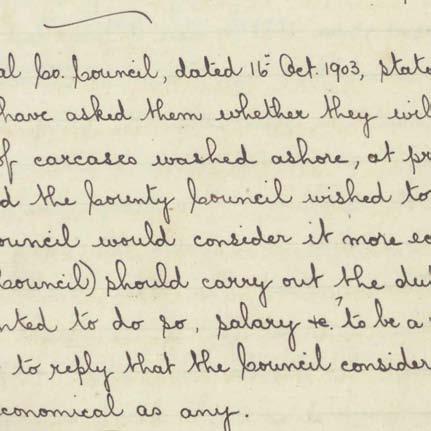 al Co. Council, dated 16th Oct. 1903, state
have asked them whether they wil
of carcases washed ashore, at pr
d the County Council wished to
ouncil would consider it more ec
Council) should carry out the du
nted to do so, salary &c. to be a
to reply that the Council consider
conomical as any.